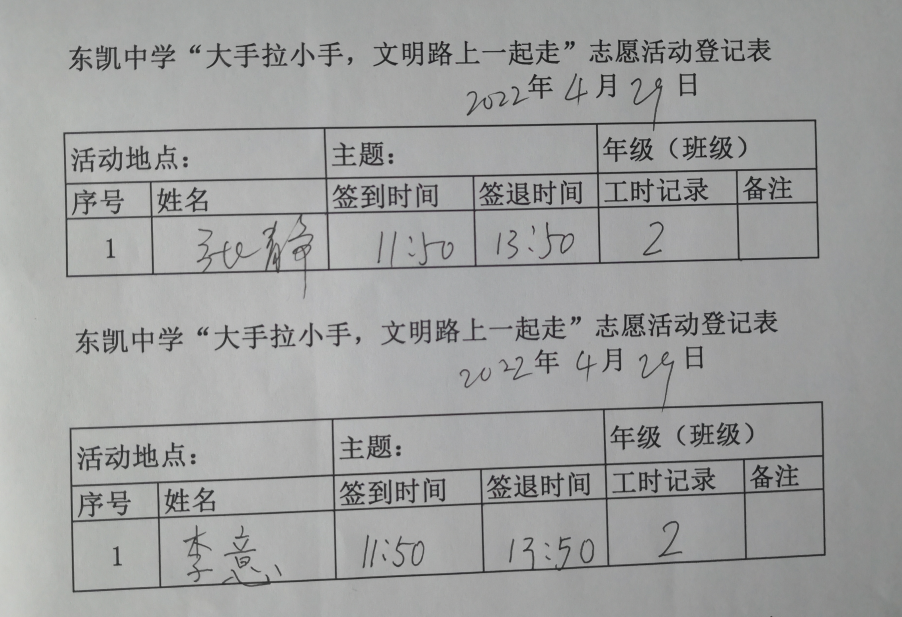 东凯中学“大手拉小手，文明路上一起走”志愿活动登记表
2022年 4月 29日
活动地点： 主题： 年级（班级）
序号 姓名 签到时间 签退时间 工时记录 备注
1 张静 11:50 13:50 2
东凯中学“大手拉小手，文明路上一起走”志愿活动登记表
2022年 4月 29日
活动地点： 主题： 年级（班级）
序号 姓名 签到时间 签退时间 工时记录 备注
1 李意 11:50 13:50 2